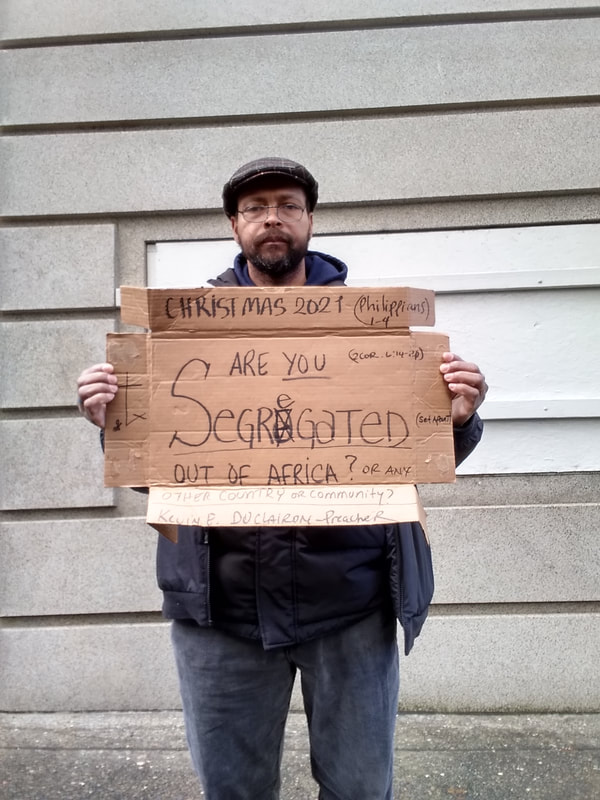 CHRISTMAS 2021 (Philippians)
1-4
ARE YOU
SEGREGATED
(Set Apart)
OUT OF AFRICA? OR ANY
OTHER COUNTRY OR COMMUNITY?
KEVIN E. DUCLAIRON - PreacheR